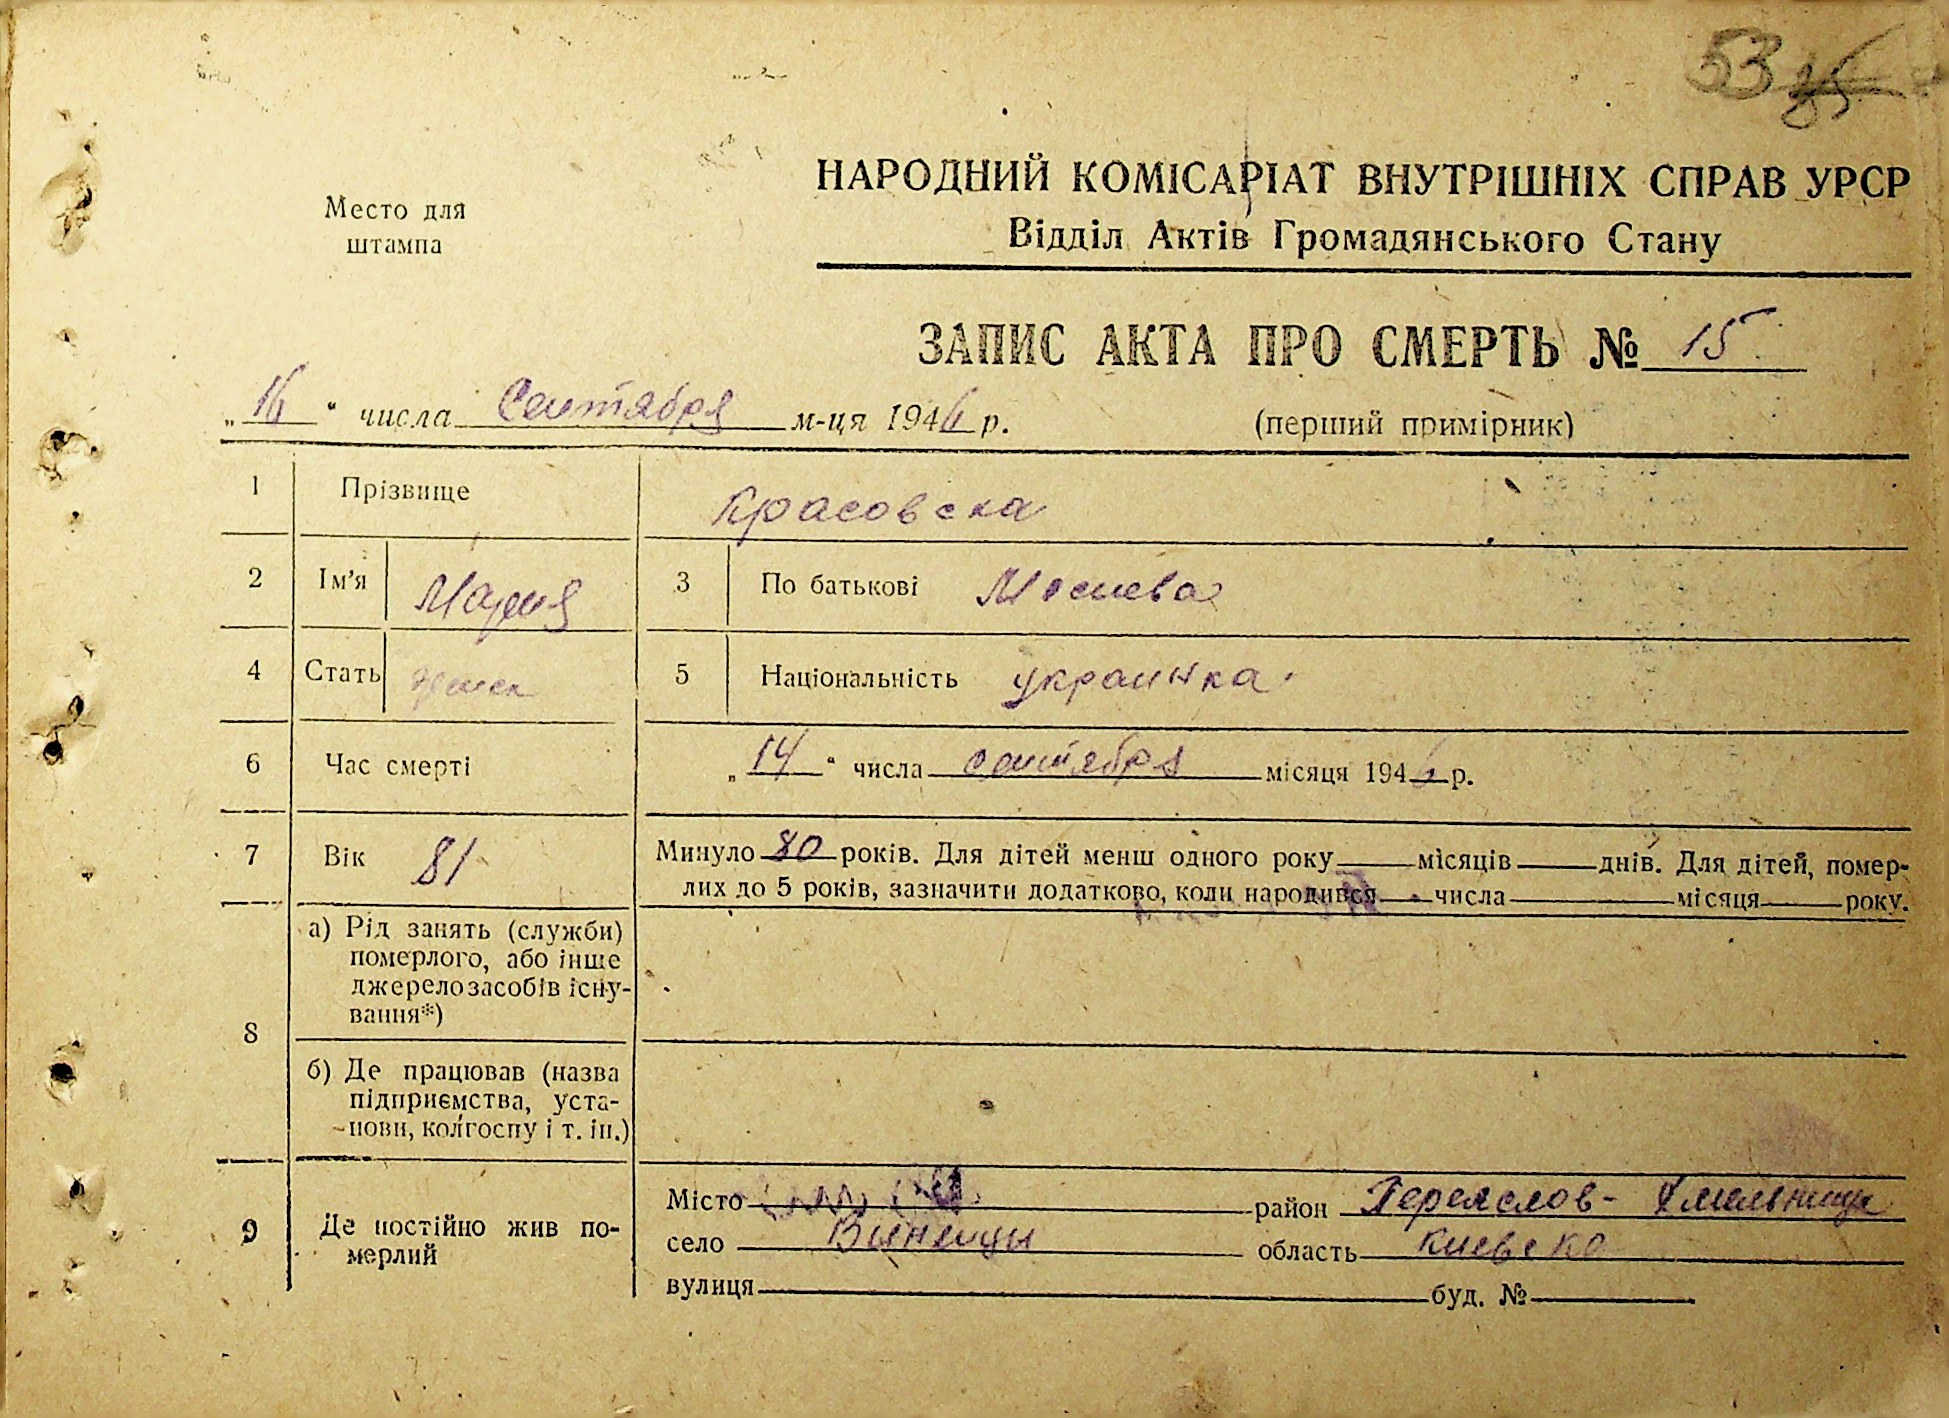 53 35
Место для
штампа
НАРОДНИЙ КОМІСАРІАТ ВНУТРІШНІХ СПРАВ УРСР
Відділ Актів Громадянського Стану
ЗАПИС АКТА ПРО СМЕРТЬ № 15
„16“ числа Сентября м-ця 1946 р.
(перший примірник)
1 Прізвище Красовска
2 Ім'я Мария 3 По батькові Мосиева
4 Стать женск 5 Національність украинка
6 Час смерті „14“ числа сентября місяця 1946 р.
7 Вік 81 Минуло 80 років. Для дітей менш одного року місяців днів. Для дітей, помер-
лих до 5 років, зазначити додатково, коли народився числа місяця року.
8 а) Рід занять (служби)
померлого, або інше
джерело засобів існу-
вання*)
б) Де працював (назва
підприємства, уста-
нови, колгоспу і т. ін.)
9 Де постійно жив по-
мерлий
Місто район Переяслов-Хмельницк
село Виненцы область Киевско
вулиця буд. №